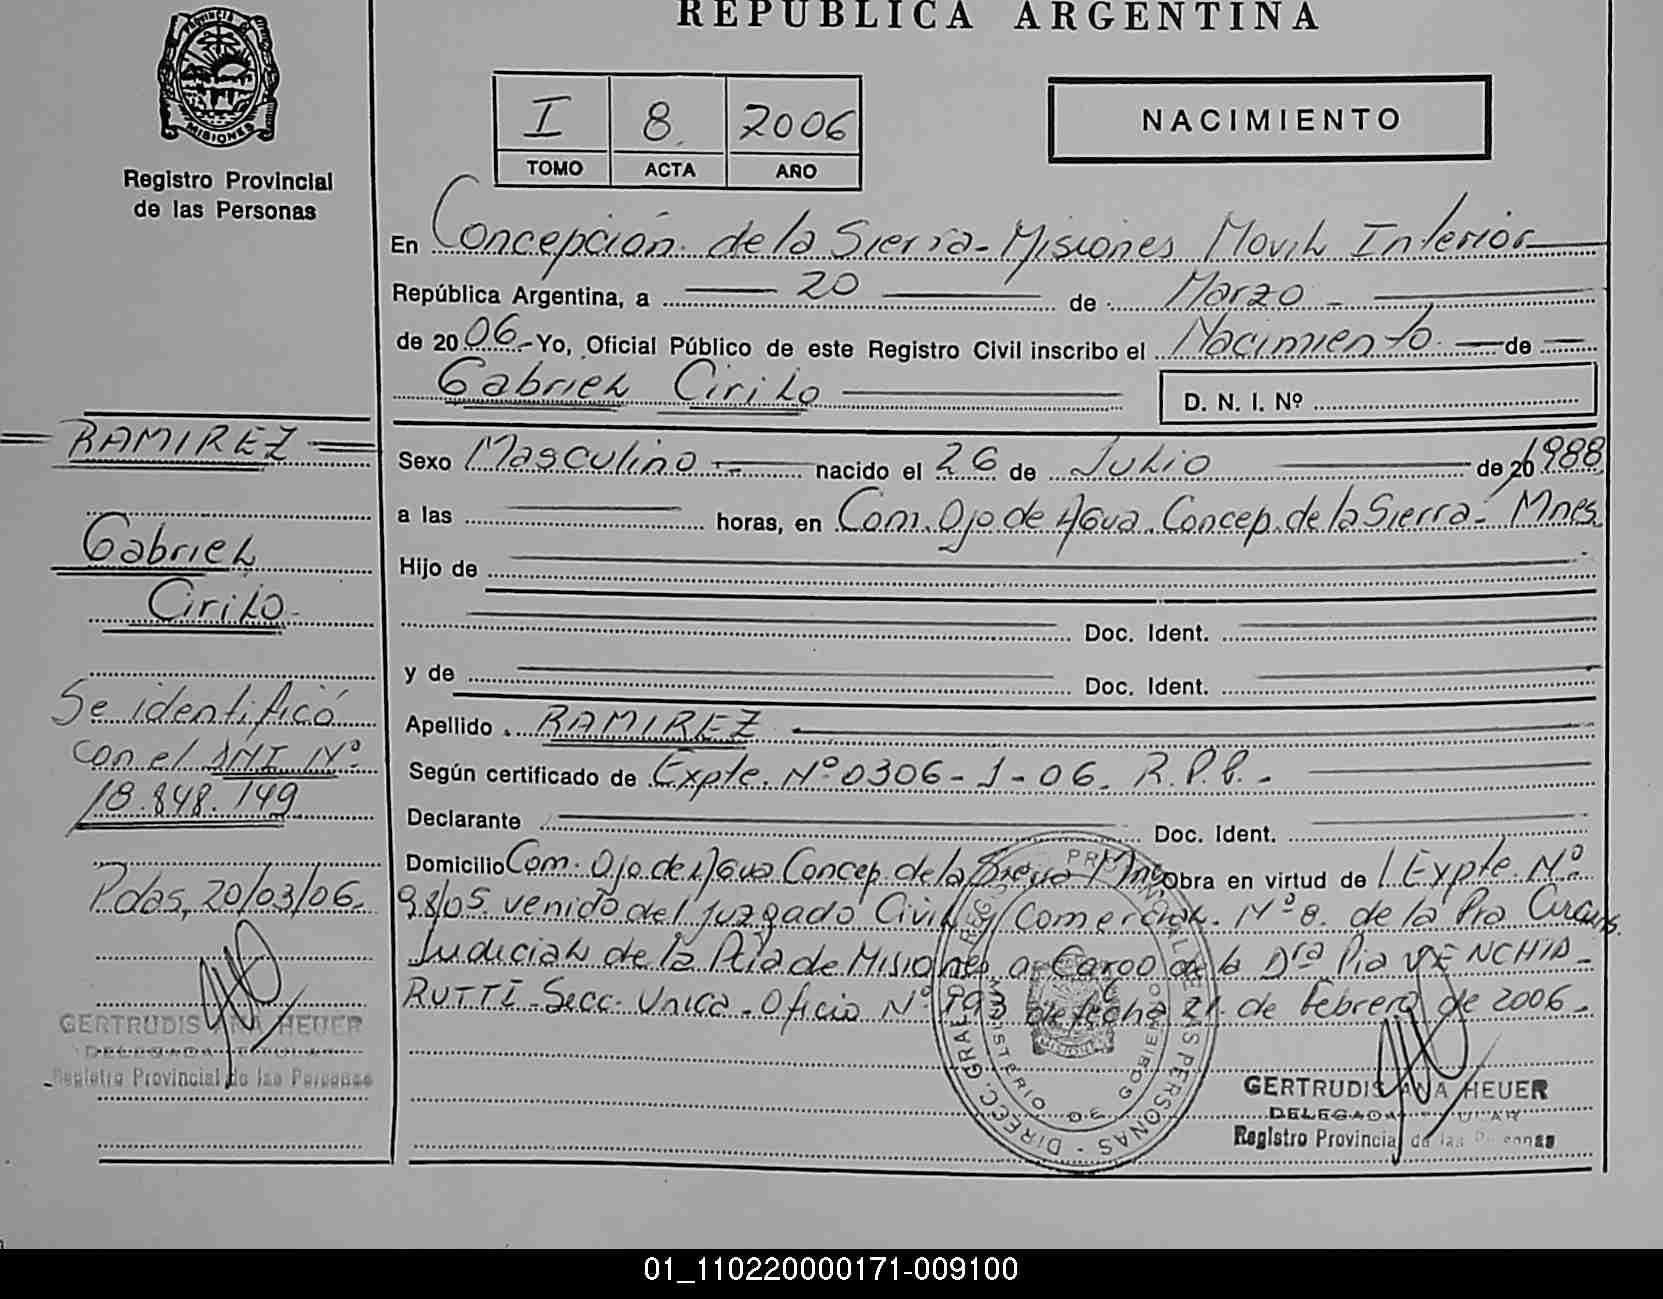 REPUBLICA ARGENTINA
PROVINCIA DE
MISIONES
Registro Provincial
de las Personas
I 8 2006
TOMO ACTA AÑO
NACIMIENTO
En Concepción de la Sierra - Misiones Movil Interior
República Argentina, a 20 de Marzo -
de 2006.- Yo, Oficial Público de este Registro Civil inscribo el Nacimiento de
Gabriel Cirilo
D. N. I. Nº
Sexo Masculino nacido el 26 de Julio de 20 1988
a las horas, en Com. Ojo de Agua. Concep. de la Sierra - Mnes.
Hijo de
Doc. Ident.
y de
Doc. Ident.
Apellido RAMIREZ
Según certificado de Expte. Nº 0306-1-06. R.P.P.-
Declarante Doc. Ident.
Domicilio Com. Ojo de Agua Concep. de la Sierra Mnes Obra en virtud de l Expte. Nº
98/05 venido del Juzgado Civil y Comercial. Nº 8. de la Pra Circuns.
Judicial de la Pcia de Misiones a Cargo de la Dra Pia VENCHIA-
RUTTI - Secc. Unica - Oficio Nº de fecha 21 de Febrero de 2006.-
GERTRUDIS ANA HEUER
DELEGADA TITULAR
Registro Provincial de las Personas
RAMIREZ
Gabriel
Cirilo-
Se identificó
con el DNI Nº
18.848.149
Pdas, 20/03/06.
GERTRUDIS ANA HEUER
DELEGADA TITULAR
Registro Provincial de las Personas
MINISTERIO DE GOBIERNO
MISIONES
01_110220000171-009100